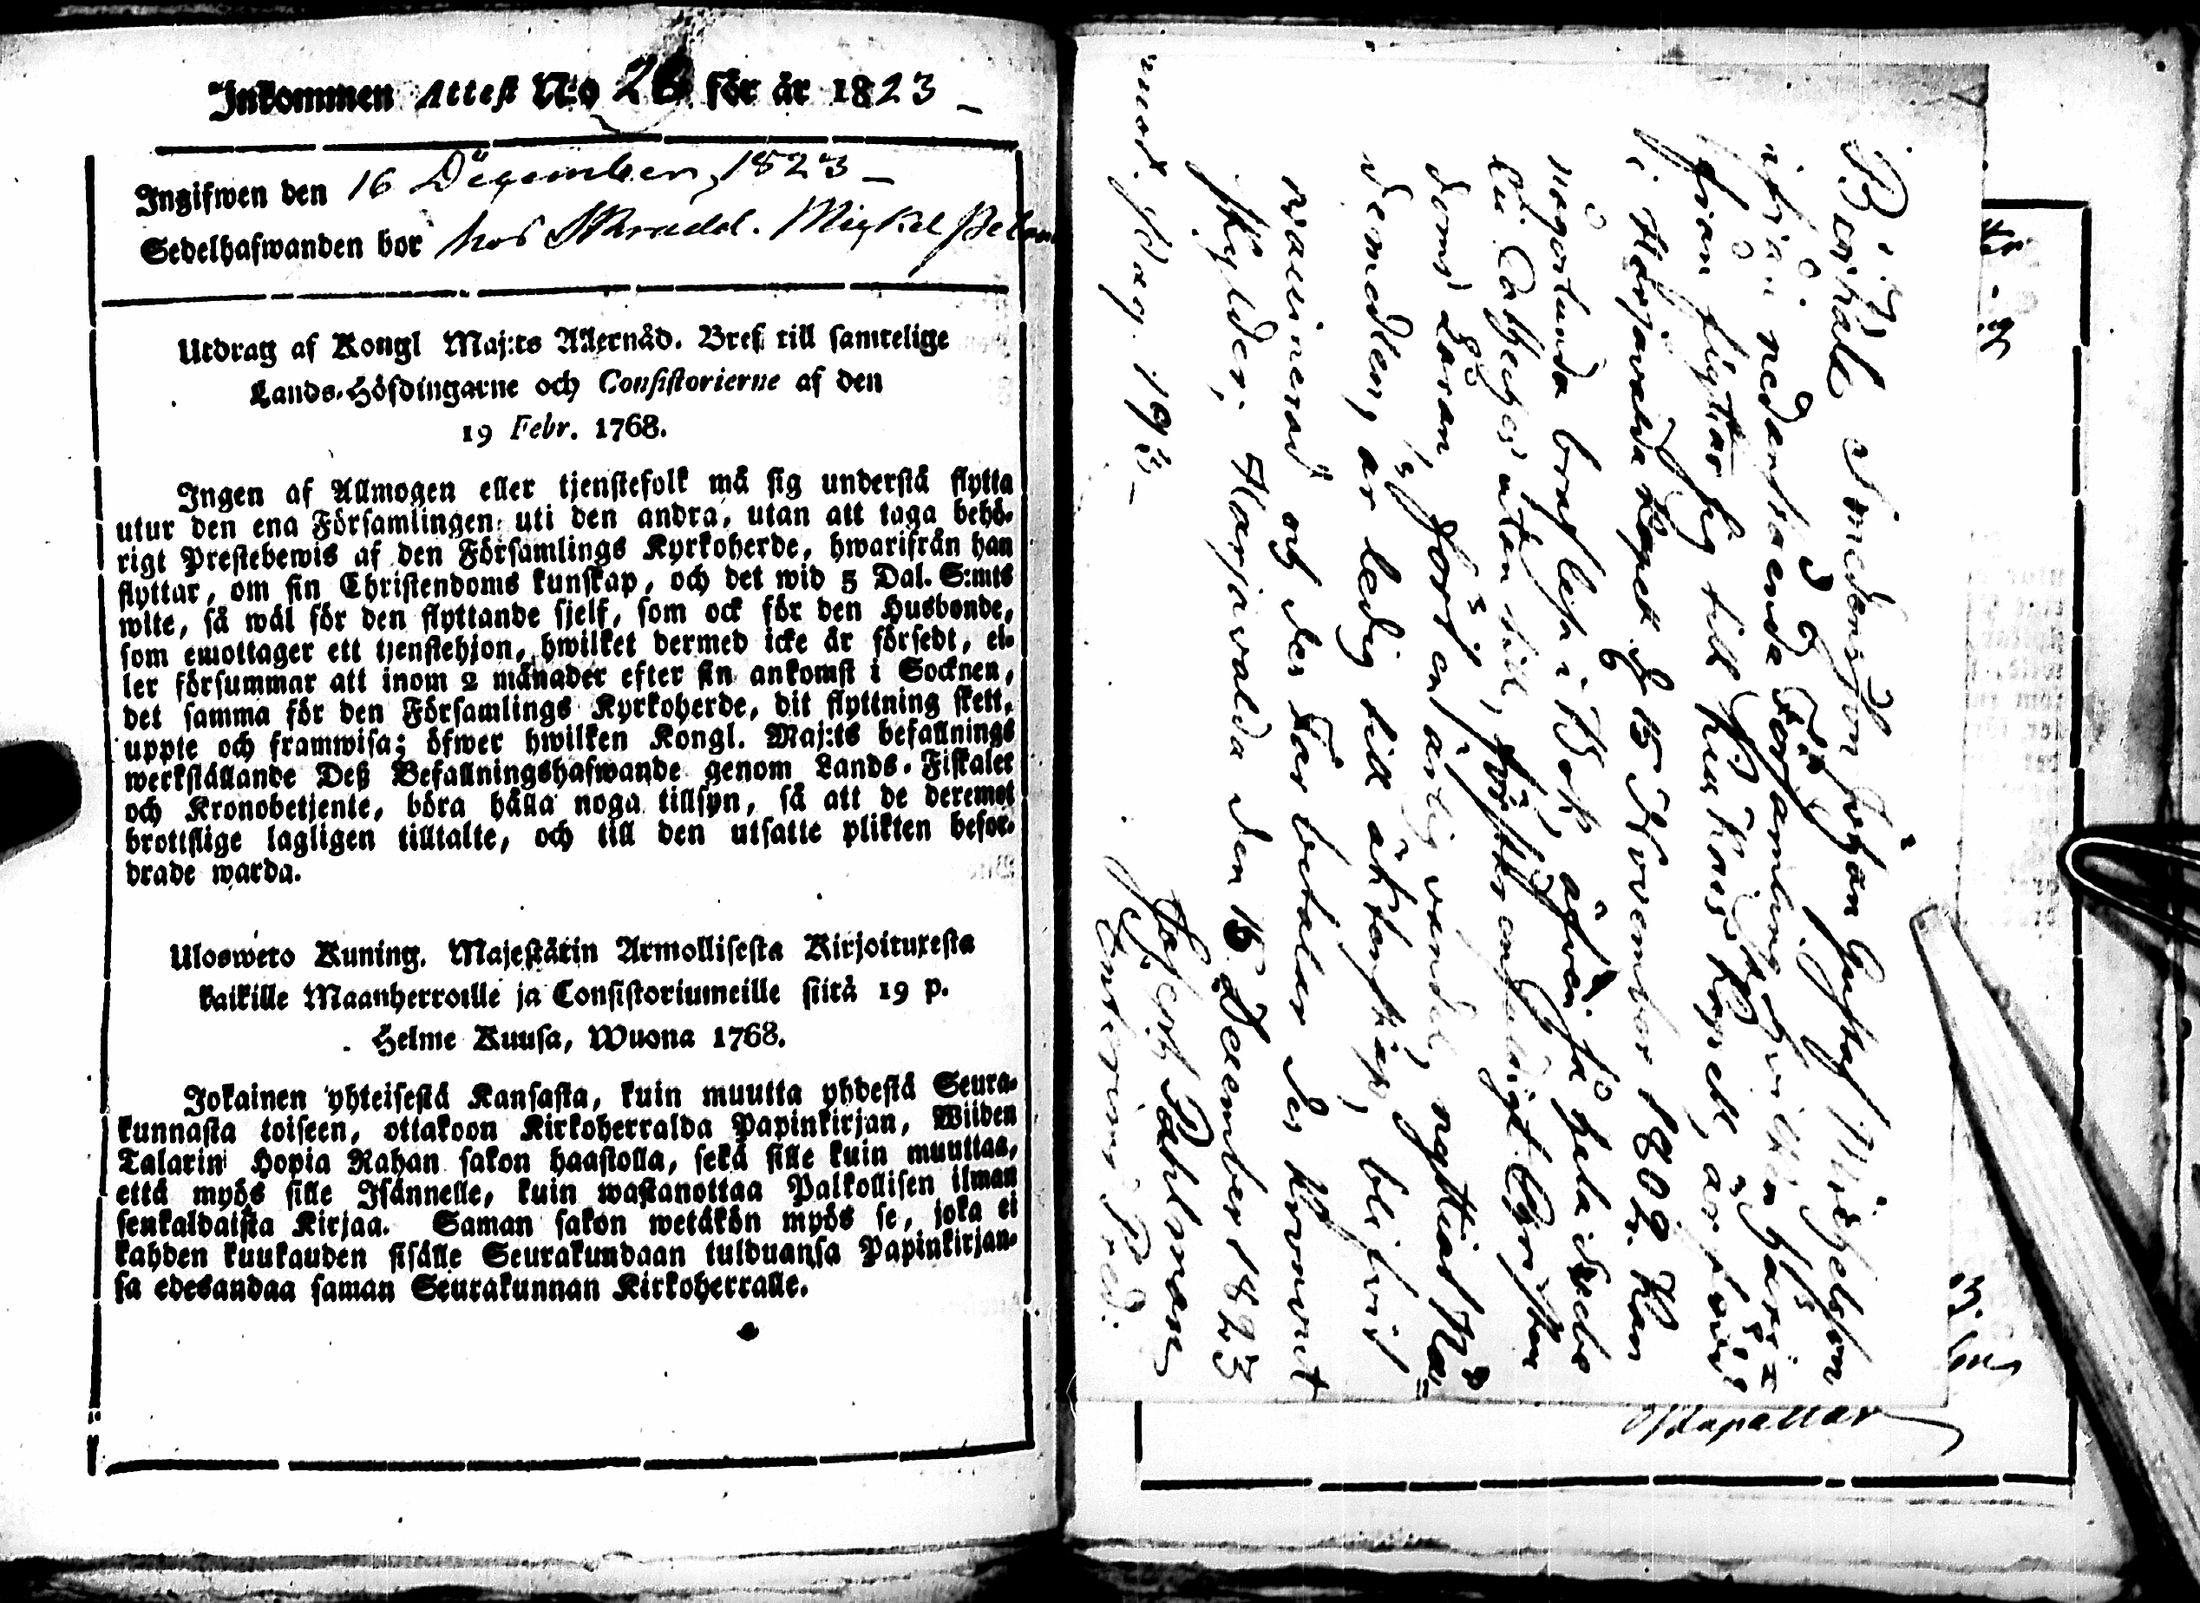 Inkommen Attest N:o 26 för år 1823
Ingifwen den 16 December, 1823
Sedelhafwanden bor hos Skradd. Mickel
Utdrag af Kongl Maj:ts Allernåd. Bref till samtelige
Lands-Höfdingarne och Consistorierne af den
19 Febr. 1768.
Ingen af Allmogen eller tjenstefolk må sig understå flytta
utur den ena Församlingen uti den andra, utan att taga behö-
rigt Prestebewis af den Församlings Kyrkoherde, hwarifrån han
flyttar, om sin Christendoms kunskap, och det wid 5 Dal. S:mts
wite, så wäl för den flyttande sjelf, som ock för den Husbonde,
som emottager ett tjenstehjon, hwilket dermed icke är försedt, el-
ler försummar att inom 2 månader efter sin ankomst i Socknen,
det samma för den Församlings Kyrkoherde, dit flyttning skett,
uppte och framwisa; öfwer hwilken Kongl. Maj:ts befallnings
werkställande Deß Befallningshafwande genom Lands-Fiskaler
och Kronobetjente, böra hålla noga tillsyn, så att de deremot
brottslige lagligen tilltalte, och till den utsatte plikten befor-
drade warda.
Ulosweto Kuning. Majestätin Armollisesta Kirjoituxesta
kaikille Maanherroille ja Consistoriumeille siitä 19 p.
Helme Kuusa, Wuona 1768.
Jokainen yhteisestä Kansasta, kuin muutta yhdestä Seura-
kunnasta toiseen, ottakoon Kirkoherralda Papinkirjan, Wiiden
Talarin Hopia Rahan sakon haastolla, sekä sille kuin muuttaa,
että myös sille Isännelle, kuin wastanottaa Palkollisen ilman
senkaldaista Kirjaa. Saman sakon wetäkön myös se, joka ei
kahden kuukauden sisälle Seurakundaan tulduansa Papinkirjan-
sa edesandaa saman Seurakunnan Kirkoherralle.
Johan Gustaf Michelsson
ifrån nedanstående Församling, hvilken härix
från flyttar sig till Kapell, är född
i Harjavalda Kapell d 15 November 1802. Han
någorlunda braf läsa i Bok, äfven så hela
Lu Catheches utan till, förstår enfaldigt Christen
doms Läran, fört en ärlig vandel, nyttiat Na=
demedlen, är ledig till äktenskap, blifvit
vaccinerad och des Far betalar des Kronout
skylder; Harjavalda den 15 December 1823
Pahlman